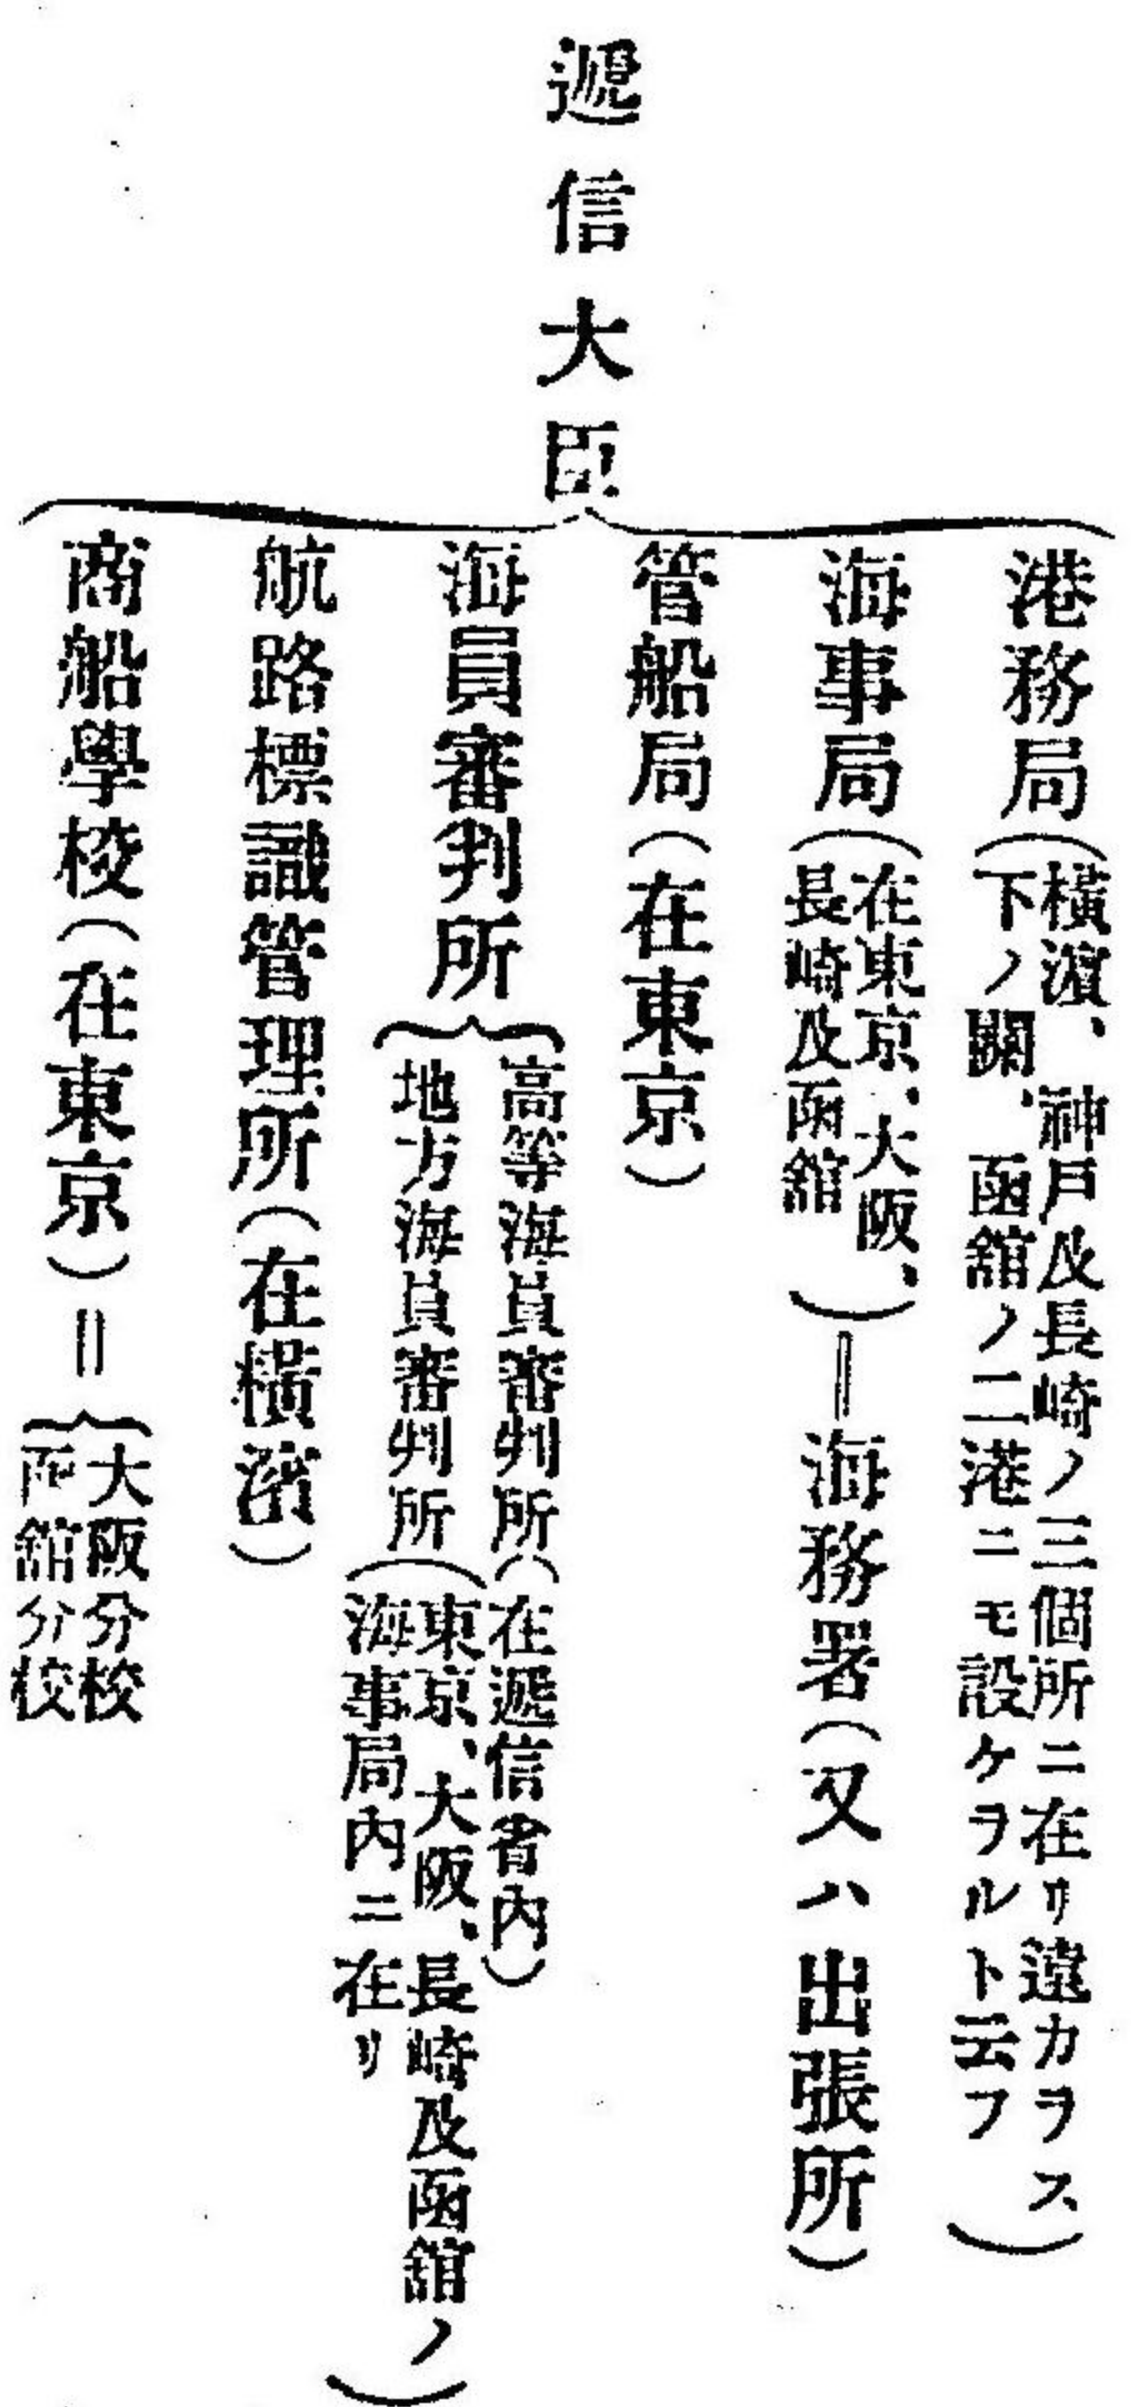 遞信大臣
港務局(横濱、神戸及長崎ノ三個所ニ在リ遠カヲス
下ノ關、函館ノ二港ニモ設ケヲルト云フ)
海事局(在東京、大阪、
長崎及函館)=海務署(又ハ出張所)
管船局(在東京)
海員審判所
高等海員審判所(在遞信省内)
地方海員審判所(東京、大阪、長崎及函館ノ
海事局内ニ在リ)
航路標識管理所(在横濱)
商船學校(在東京)=
大阪分校
函館分校